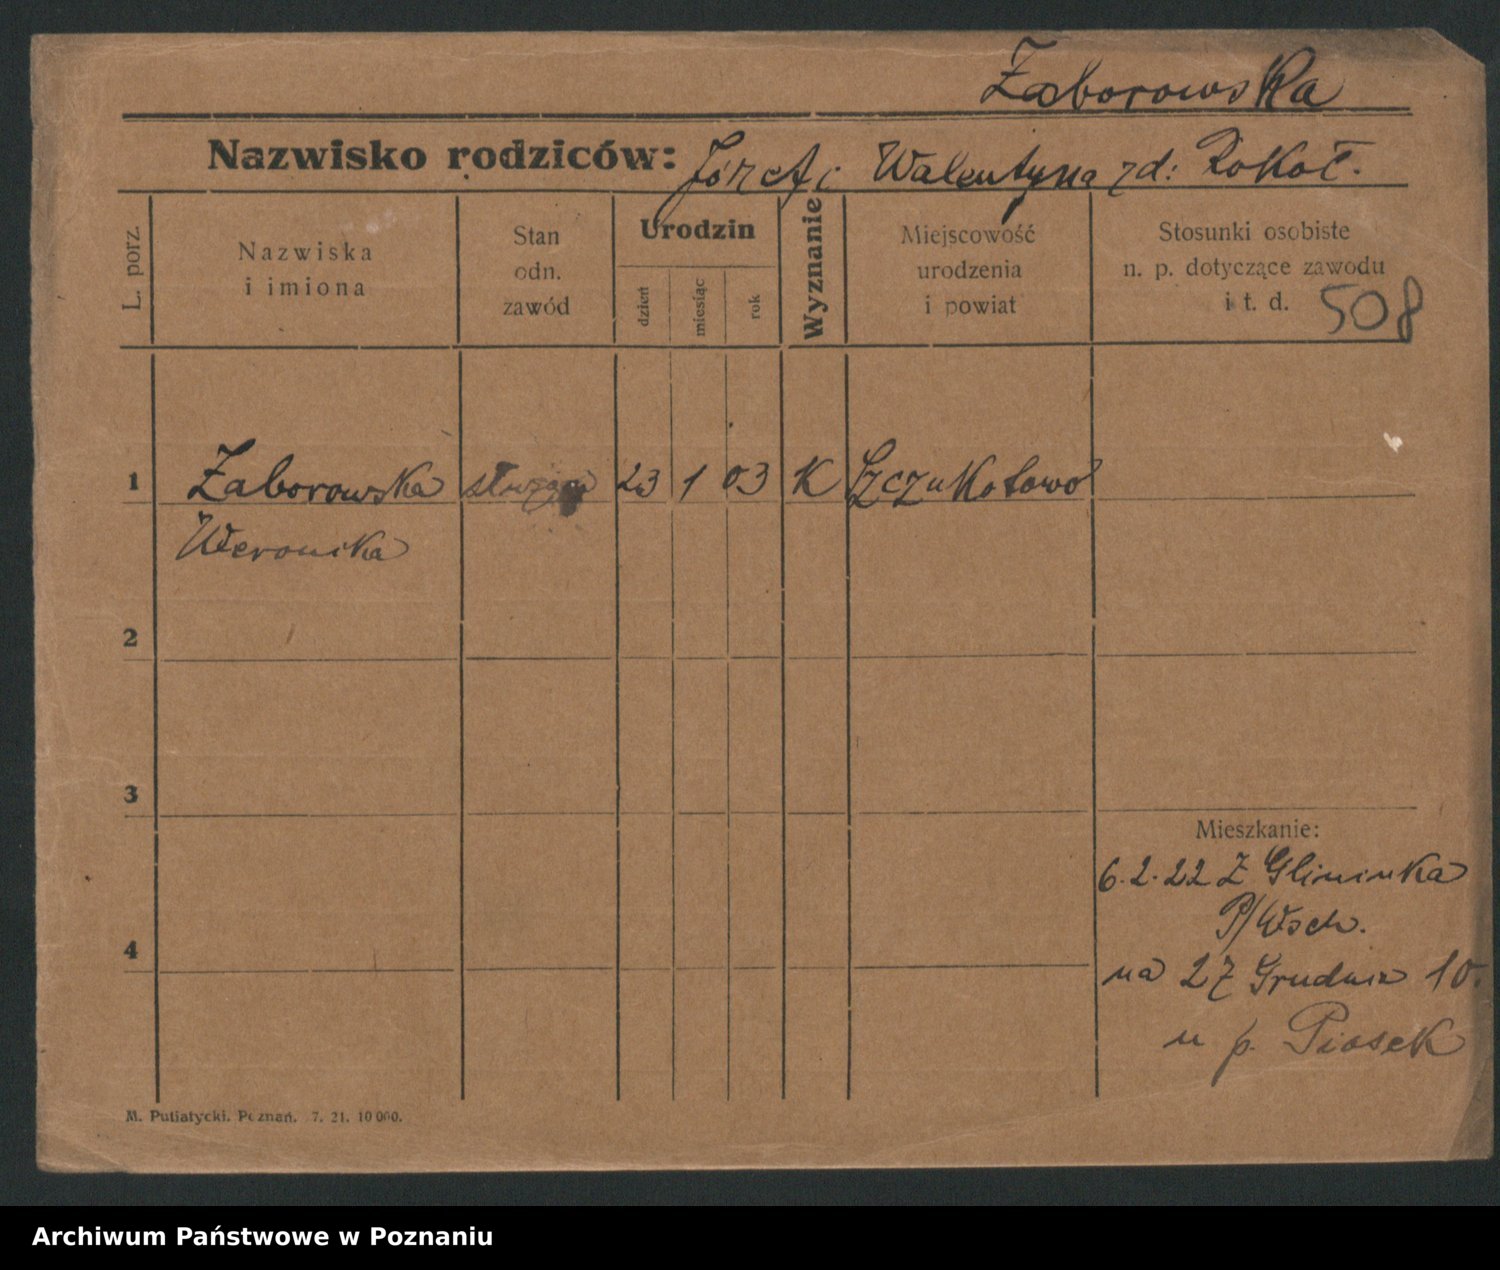 Zaborowska
Nazwisko rodziców: Józef i Walentyna zd: Rokoł.
L. porz.
Nazwiska
i imiona
Stan
odn.
zawód
Urodzin
dzień
miesiąc
rok
Wyznanie
Miejscowość
urodzenia
i powiat
Stosunki osobiste
n. p. dotyczące zawodu
i t. d.
508
1 Zaborowska służąca 23 1 03 K Szczukotowo
Weronika
2
3
Mieszkanie:
6.2.22 Z Glininka
P/Wsch.
4
na 27 Grudnia 10.
u p. Piasek
M. Putiatycki. Poznań. 7. 21. 10 000.
Archiwum Państwowe w Poznaniu